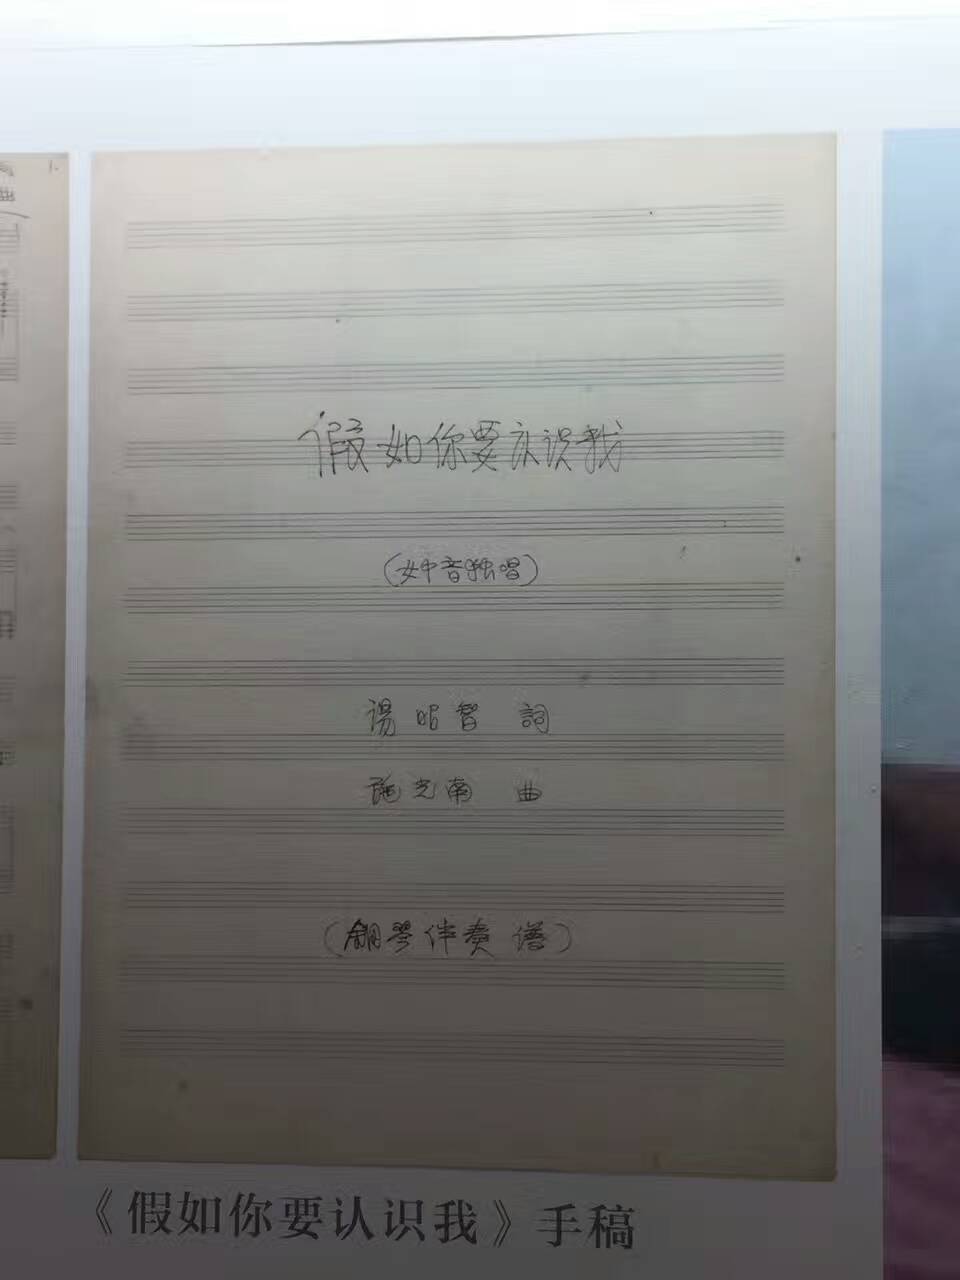 假如你要认识我
(女中音独唱)
湯昭智 詞
施光南 曲
(鋼琴伴奏谱)
《假如你要认识我》手稿